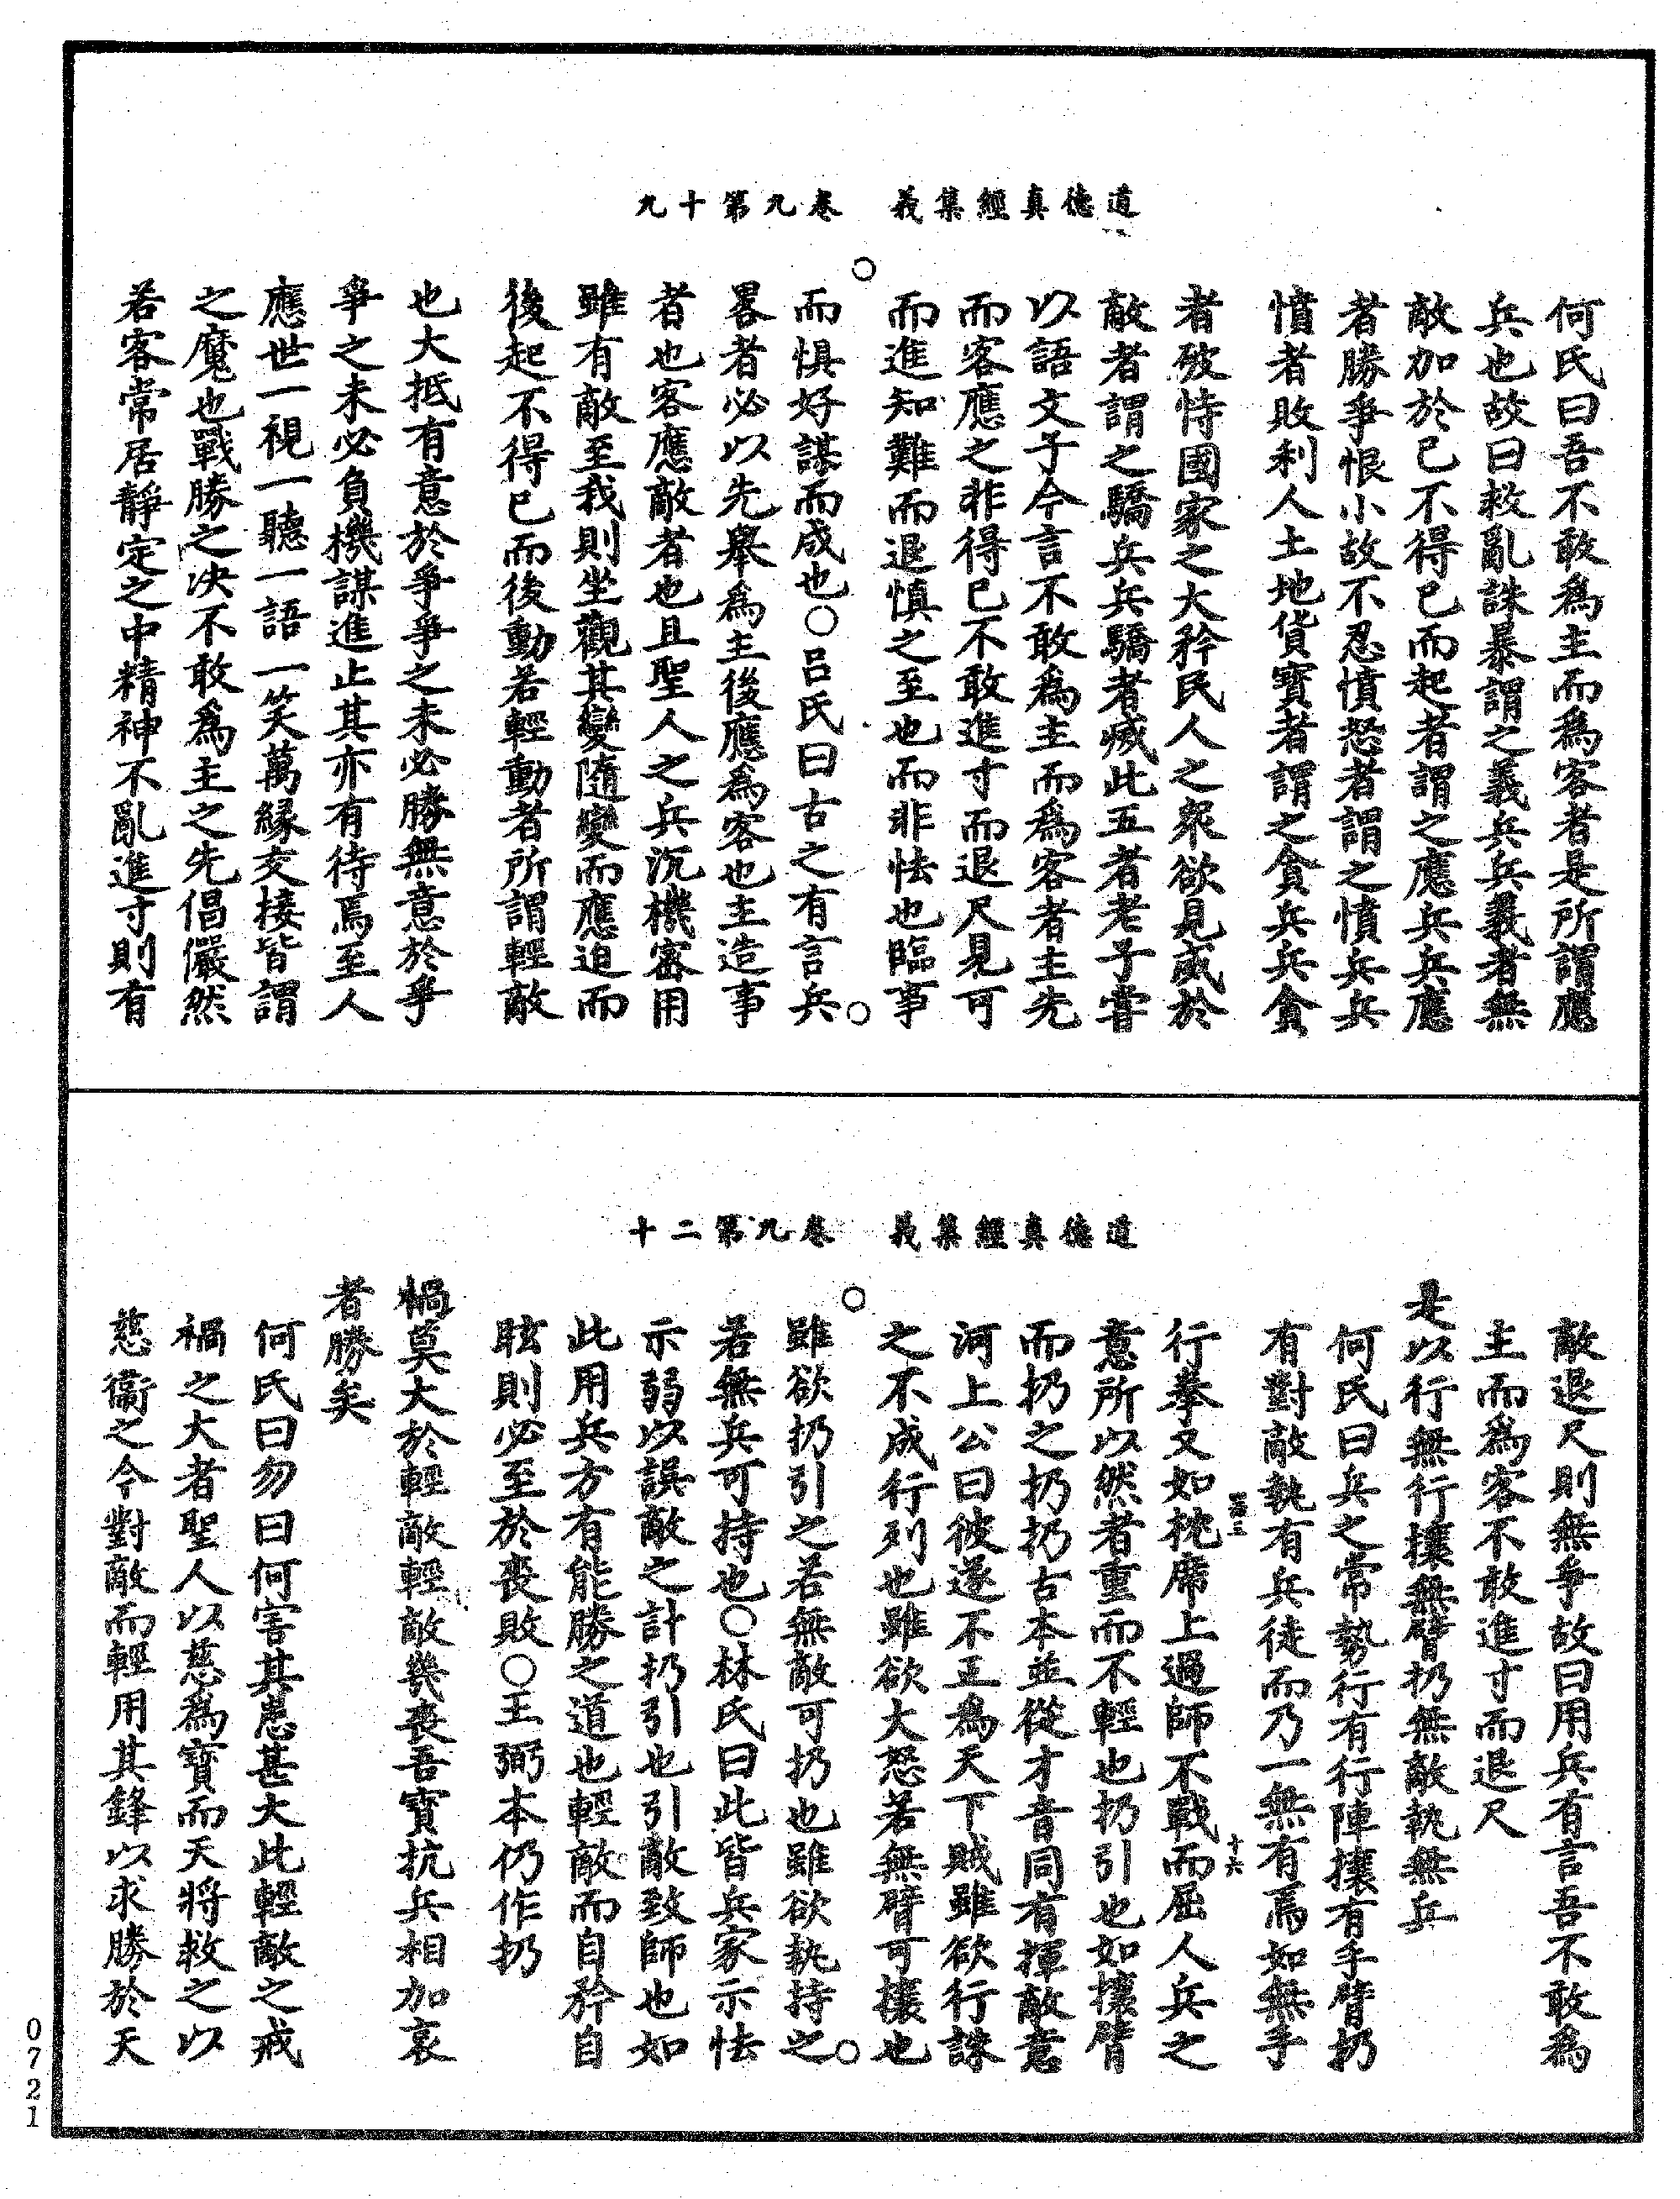 道德真經集義　卷九第十九
何氏曰吾不敢為主而為客者是所謂應
兵也故曰救亂誅暴謂之義兵兵義者無
敵加於己不得已而起者謂之應兵兵應
者勝爭恨小故不忍憤怒者謂之憤兵兵
憤者敗利人土地貨寶者謂之貪兵兵貪
者破恃國家之大矜民人之眾欲見威於
敵者謂之驕兵兵驕者滅此五者老子嘗
以語文子今言不敢為主而為客者主先
而客應之非得已不敢進寸而退尺見可
而進知難而退慎之至也而非怯也臨事
而惧好謀而成也○呂氏曰古之有言兵
畧者必以先舉為主後應為客也主造事
者也客應敵者也且聖人之兵沉機審用
雖有敵至我則坐觀其變隨變而應迫而
後起不得已而後動若輕動者所謂輕敵
也大抵有意於爭爭之未必勝無意於爭
爭之未必負機謀進止其亦有待焉至人
應世一視一聽一語一笑萬緣交接皆謂
之魔也戰勝之決不敢為主之先倡儼然
若客常居靜定之中精神不亂進寸則有
道德真經集義　卷九第二十
敵退尺則無爭故曰用兵有言吾不敢為
主而為客不敢進寸而退尺
是以行無行攘無臂扔無敵執無兵
何氏曰兵之常勢行有行陣攘有手臂扔
有對敵執有兵徒而乃一無有焉如無手
行拳又如枕席上過師不戰而屈人兵之
意所以然者重而不輕也扔引也如攘臂
而扔之扔扔古本並從才音同有揮敵意
河上公曰彼遂不正為天下賊雖欲行誅
之不成行列也雖欲大怒若無臂可攘也
雖欲扔引之若無敵可扔也雖欲執持之
若無兵可持也○林氏曰此皆兵家示怯
示弱以誤敵之計扔引也引敵致師也如
此用兵方有能勝之道也輕敵而自矜自
眩則必至於喪敗○王弼本仍作扔
禍莫大於輕敵輕敵幾喪吾寶抗兵相加哀
者勝矣
何氏曰勿曰何害其患甚大此輕敵之戒
禍之大者聖人以慈為寶而天將救之以
慈衞之今對敵而輕用其鋒以求勝於天
十六
0721